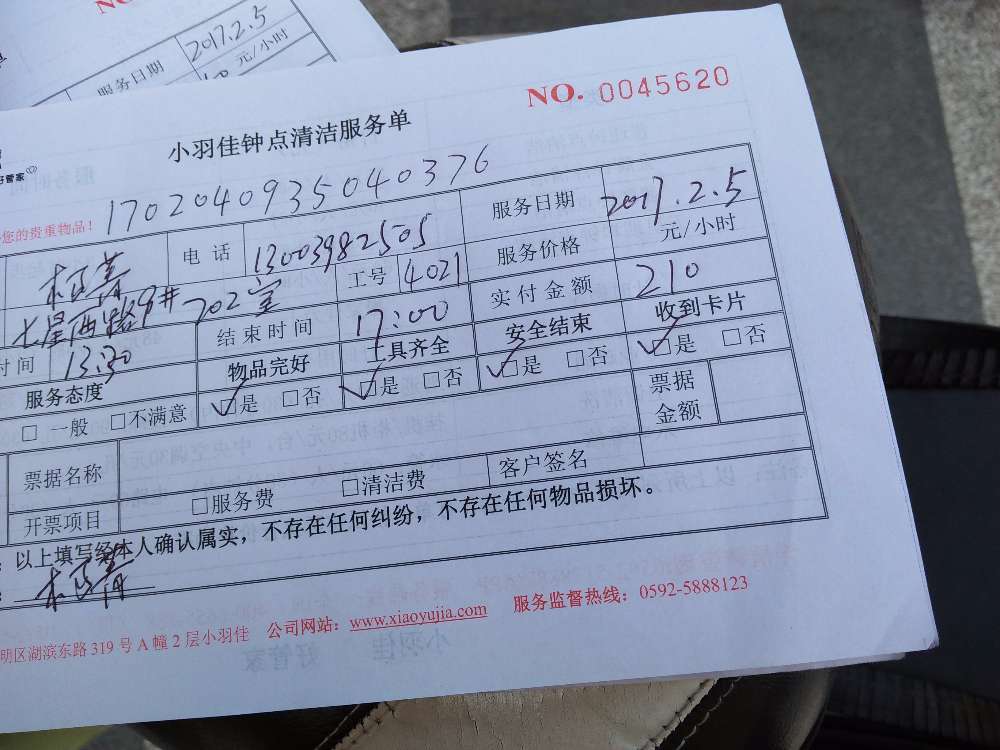 NO.
服务日期 2017.2.5
元/小时
NO. 0045620
小羽佳钟点清洁服务单
好管家
17020409350403​76
您的贵重物品！
电话 13003982505 服务日期 2017.2.5
七星西路9# 702室 工号 4021 服务价格 元/小时
时间 13:30 结束时间 17:00 实付金额 210
服务态度 物品完好 工具齐全 安全结束 收到卡片
□ 一般 □不满意 ☑是 □否 ☑是 □否 ☑是 □否 ☑是 □否
票据名称 票据金额
开票项目 □服务费 □清洁费 客户签名
：以上填写经本人确认属实，不存在任何纠纷，不存在任何物品损坏。
明区湖滨东路 319 号 A 幢 2 层小羽佳 公司网站：www.xiaoyujia.com 服务监督热线：0592-5888123